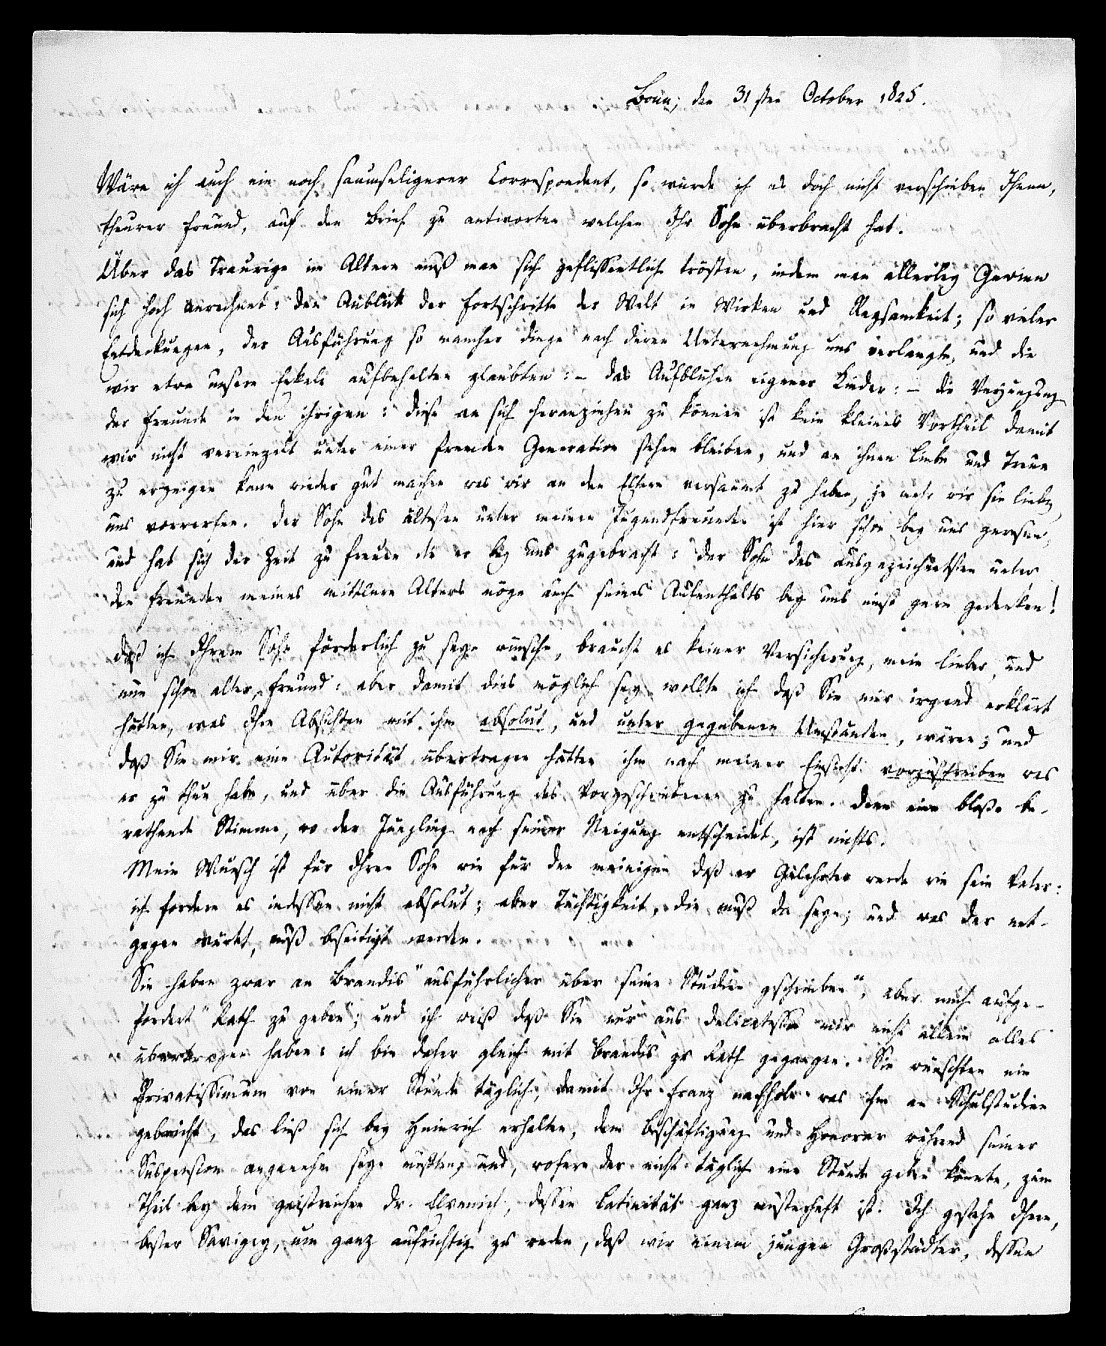 Bonn, den 31sten October 1825.
Wäre ich auch ein noch saumseligerer Correspondent, so würde ich es doch nicht verschieben Ihnen,
theurer Freund, auf den Brief zu antworten welchen Ihr Sohn überbracht hat.
Über das Traurige im Altern muß man sich geflissentlich trösten, indem man allerley Gewinn
sich hoch anrechnet: den Anblick der Fortschritte der Welt in Wirken und Regsamkeit; so vieler
Entdeckungen, der Ausführung so mancher Dinge nach deren Unternehmung uns verlangte, und die
wir etwa unsern Enkeln aufbehalten glaubten: – das Aufblühen eigener Kinder: – die Verjüngung
der Freunde in den ihrigen: diese an sich heranziehen zu können ist kein kleiner Vortheil damit
wir nicht vereinzelt unter einer fremden Generation stehen bleiben, und an ihnen Liebe und Treue
zu erzeigen kann wieder gut machen was wir an den Eltern versäumt zu haben, je mehr wir sie lieben
uns vorwerfen. Der Sohn des ältesten unter meinen Jugendfreunden ist hier schon bey uns gewesen,
und hat sich der Zeit zu freuen die er bey uns zugebracht: der Sohn des ausgezeichnetsten unter
den Freunden meines mittleren Alters möge auch seines Aufenthalts bey uns einst gern gedenken!
Daß ich Ihrem Sohn förderlich zu seyn wünsche, braucht es keiner Versicherung, mein lieber, und
nun schon alter, Freund: aber damit dies möglich sey wollte ich daß Sie mir irgend erklärt
hätten, was Ihre Absichten mit ihm absolut, und unter gegebenen Umständen, wären; und
daß Sie mir eine Autorität übertragen hätten ihm nach meiner Einsicht vorzuschreiben was
er zu thun habe, und über die Ausführung des Vorgeschriebenen zu halten. Denn eine bloße be-
rathende Stimme, wo der Jüngling nach seiner Neigung entscheidet, ist nichts.
Mein Wunsch ist für Ihren Sohn wie für den meinigen daß er Gelehrter werde wie sein Vater:
ich fordere es indessen nicht absolut; aber Tüchtigkeit, die muß da seyn; und was der ent-
gegen wirkt, muß beseitigt werden.
Sie haben zwar an Brandis "ausführlicher über seine Studien geschrieben", aber mich aufge-
fordert "Rath zu geben"; und ich weiß daß Sie nur aus Delicatesse mir nicht allein alles
übertragen haben: ich bin daher gleich mit Brandis zu Rath gegangen. Sie wünschten ein
Privatissimum von einer Stunde täglich, damit Ihr Franz nachhole was ihm an Schulstudien
gebricht, das ließ sich bey Heinrich erhalten, dem Beschäftigung und Honorar während seiner
Suspension angenehm seyn mußten, und, wofern der nicht täglich eine Stunde geben könnte, zum
Theil bey dem geistreichen Dr. Elvenich, dessen Latinität ganz musterhaft ist. Ich gestehe Ihnen,
bester Savigny, um ganz aufrichtig zu reden, daß wir einem jungen Großstädter, dessen